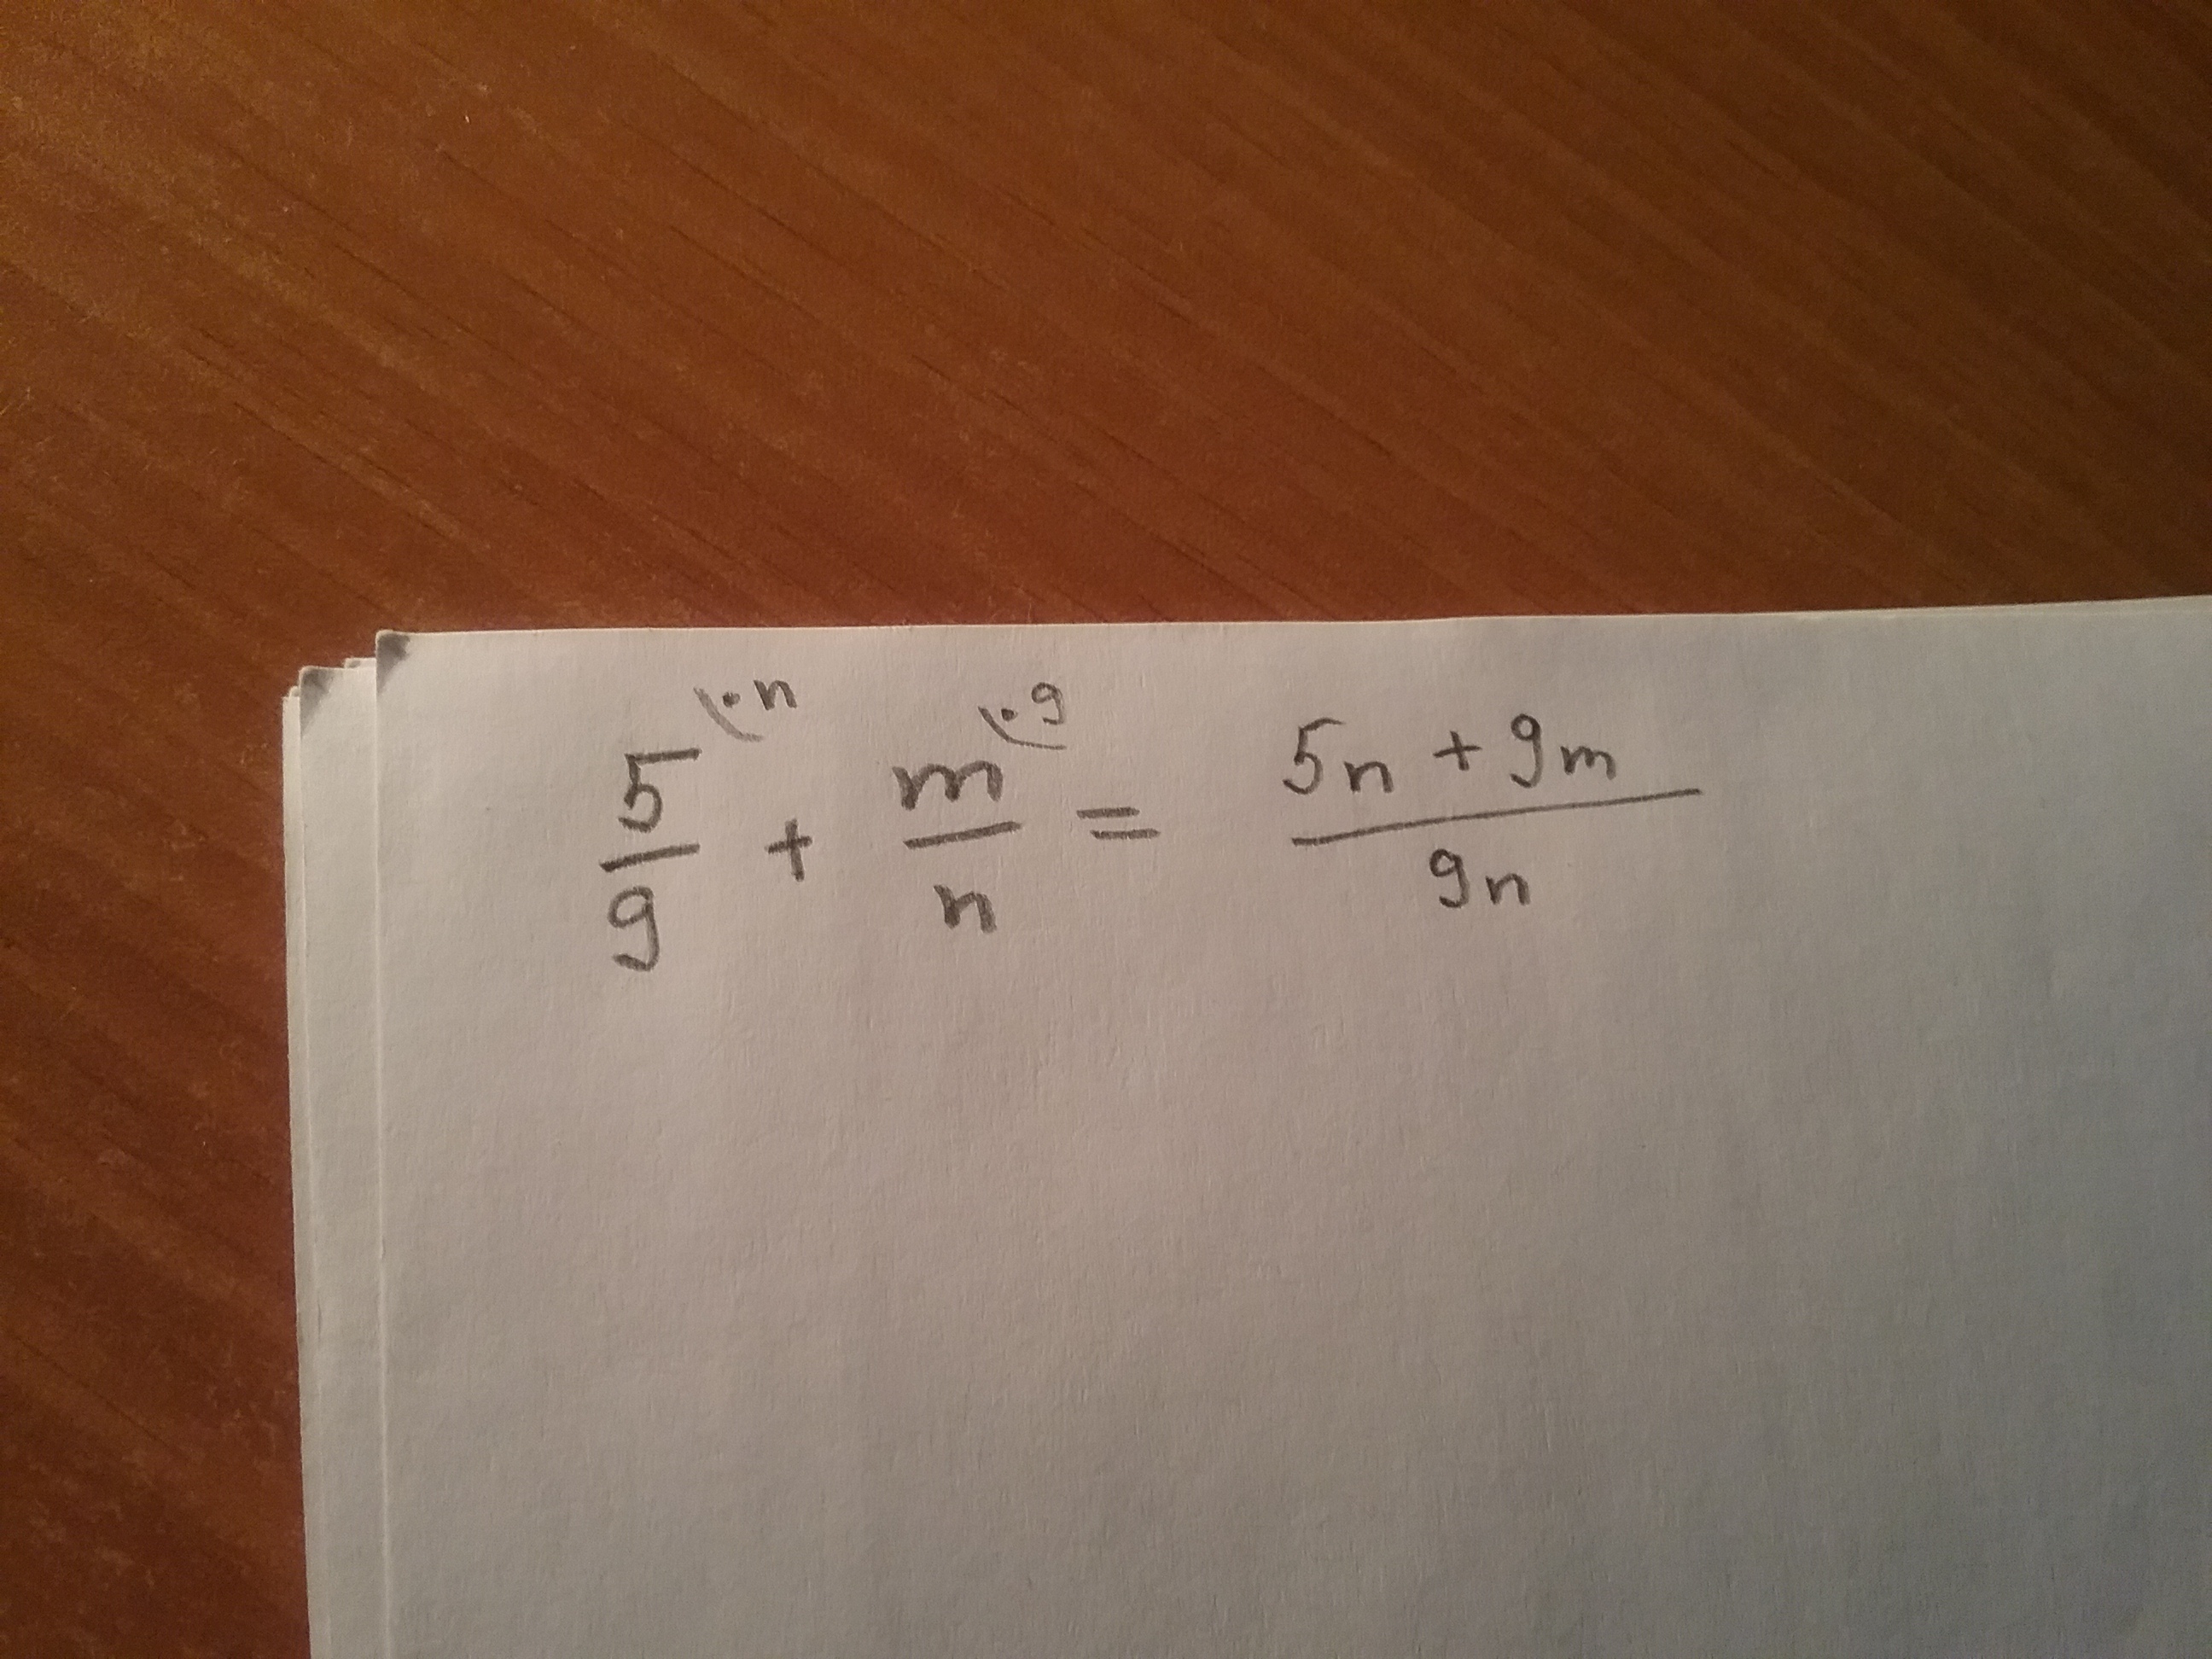 5/9 (·n + m/n (·9 = (5n + 9m)/(9n)